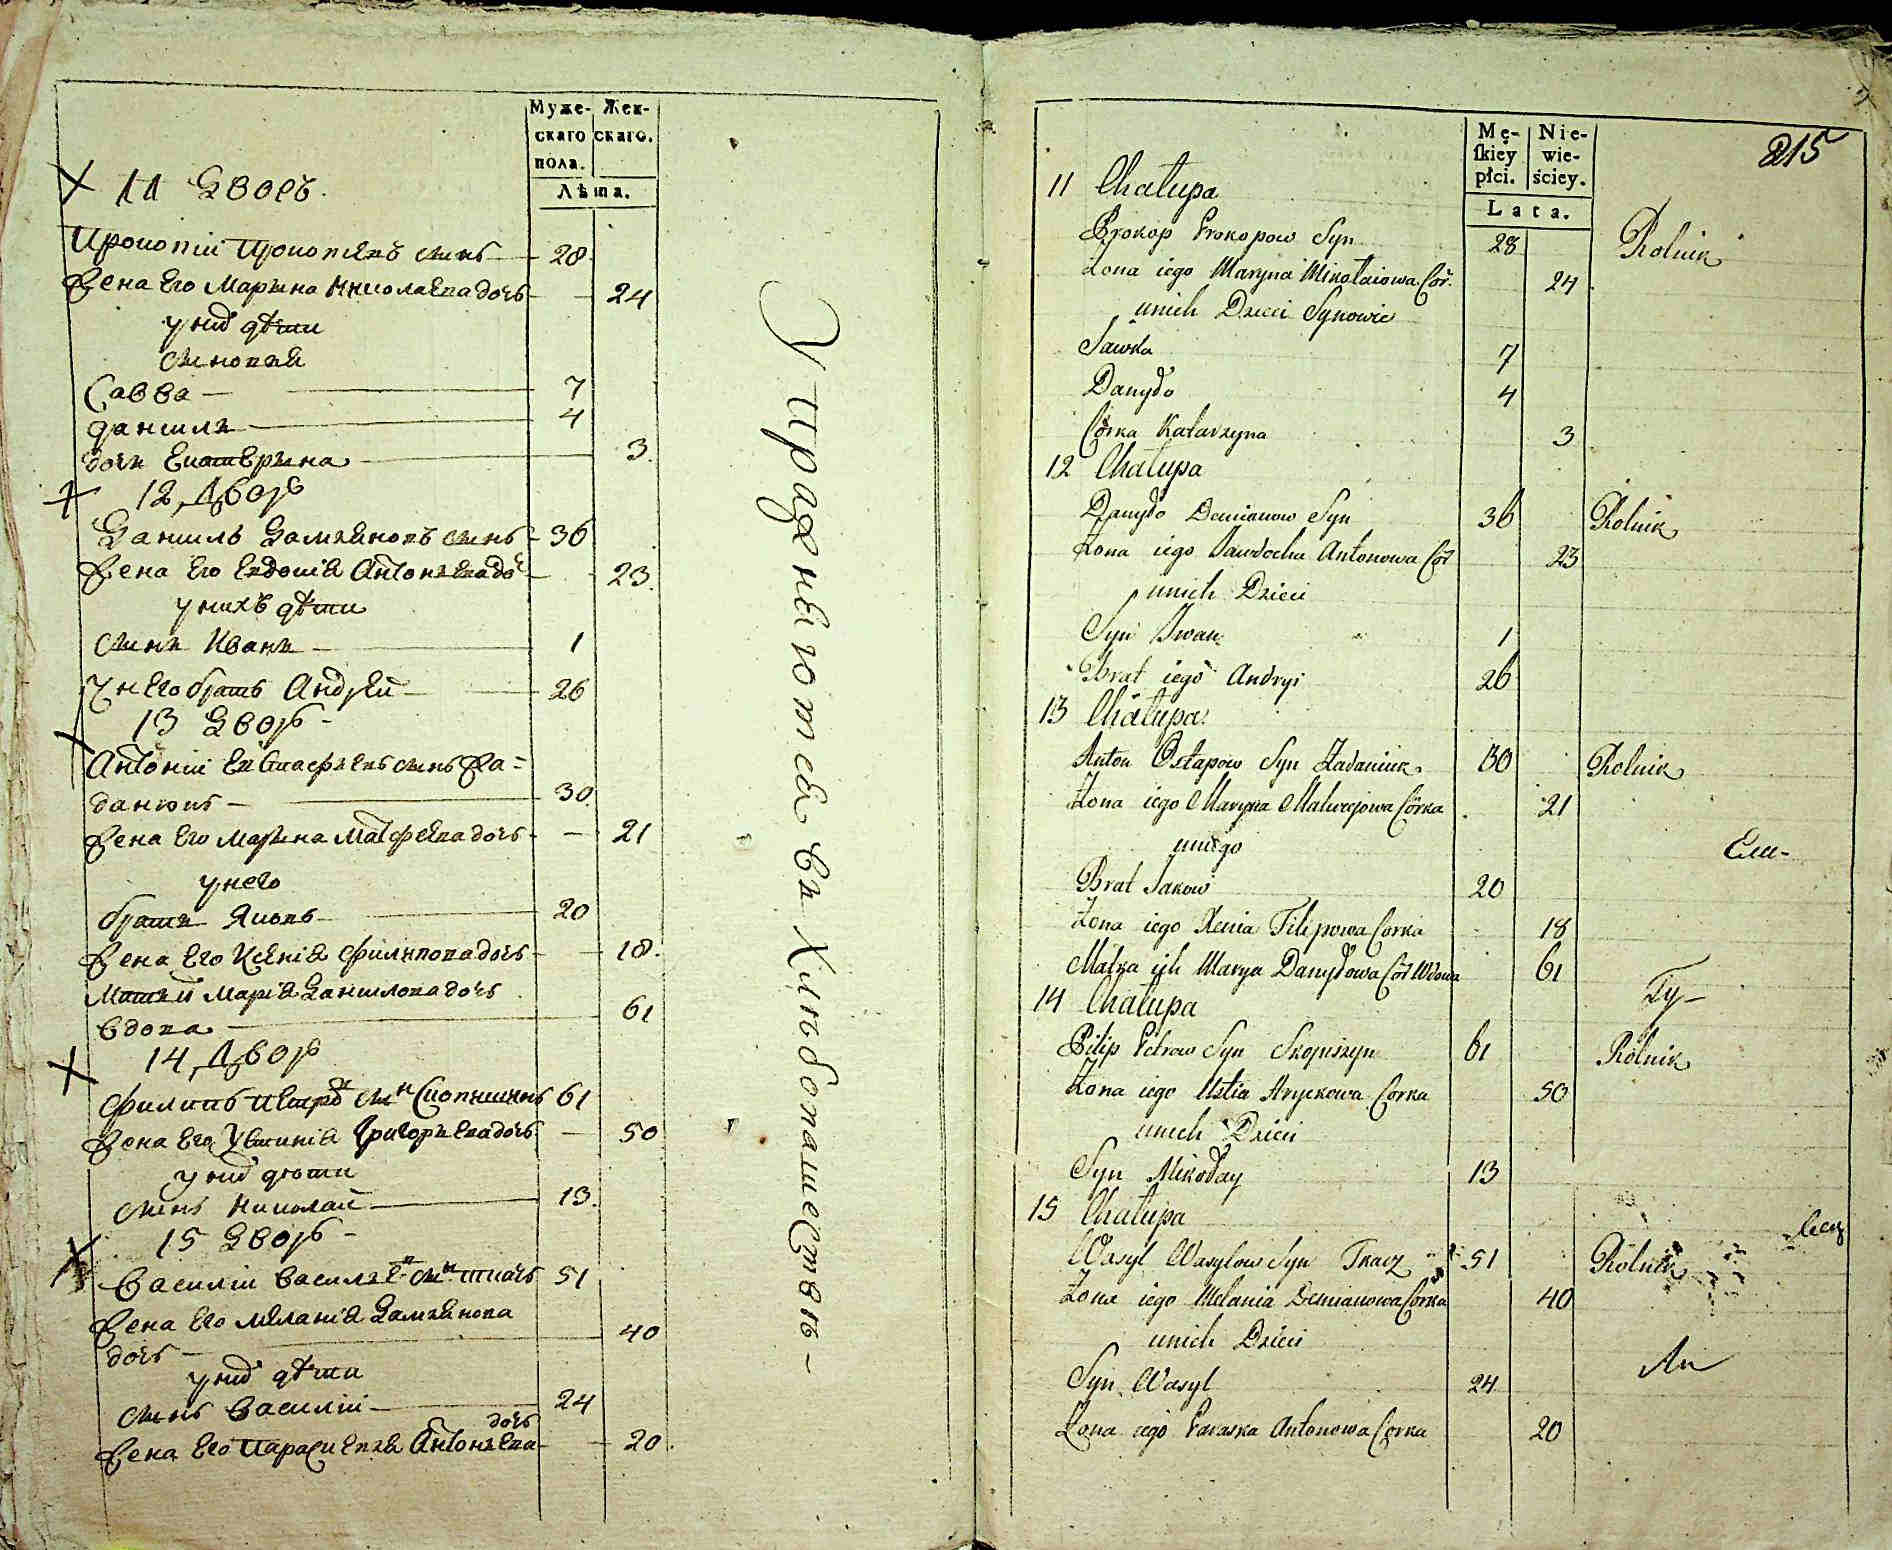 Муже-
скаго
пола.
Жен-
скаго.
Лѣта.
11 Дворъ.
Прокопій Прокопіевъ сынъ 28
Жена Его Марына Николаева дочь 24
у нихъ дѣти
сыновья
Савва 7
Данила 4
дочь Екатерина 3
12 Дворъ
Данилъ Дамяновъ сынъ 36
Жена Его Евдокія Антоньева дочь 23
у нихъ дѣти
сынъ Иванъ 1
У него братъ Андрей 26
13 Дворъ
Антоній Евстафьевъ сынъ Жа=
данюкъ 30
Жена Его Марына Матфеева дочь 21
у него
братъ Яковъ 20
Жена Его Ксенія Филипова дочь 18
Матей Марія Данилова дочь
вдова 61
14 Дворъ
Филипъ Петровъ сынъ 61
Жена Его Устинія Григорьева дочь 50
у нихъ дѣти
сынъ Николай 13
15 Дворъ
Василій Васильевъ сынъ Ткачъ 51
Жена Его Меланія Дамянова
дочь 40
у нихъ дѣти
сынъ Василій 24
Жена Его Параскевья Антоньева дочь 20
Упражняются въ Хлѣбопашествѣ
215
Mę-
skiéy
płci.
Nie-
wie-
ściey.
Lata.
11 Chałupa
Prokop Prokopow Syn 28 Rolnik
Żona iego Maryna Mikołaiowa Cór. 24
unich Dzieci Synowie
Sawka 7
Danyło 4
Córka Katarzyna 3
12 Chałupa
Danyło Demianow Syn 36 Rolnik
Żona iego Jawdocha Antonowa Cór 23
unich Dzieci
Syn Iwan 1
Brat iego Andryi 26
13 Chałupa
Anton Ostapow Syn Żadaniuk 30 Rolnik
Żona iego Maryna Matwejowa Córka 21
uniego
Brat Jakow 20
Żona iego Xenia Filipowa Corka 18
Matka ich Marya Danyłowa Cór Wdowa 61
14 Chałupa
Pilip Petrow Syn 61 Rolnik
Żona iego Ustia Hryckowa Corka 50
unich Dzieci
Syn Mikołay 13
15 Chałupa
Wasyl Wasylow Syn Tkacz 51 Rolnik
Żona iego Melania Demianowa Córka 40
unich Dzieci
Syn Wasyl 24
Żona iego Paraska Antonowa Corka 20